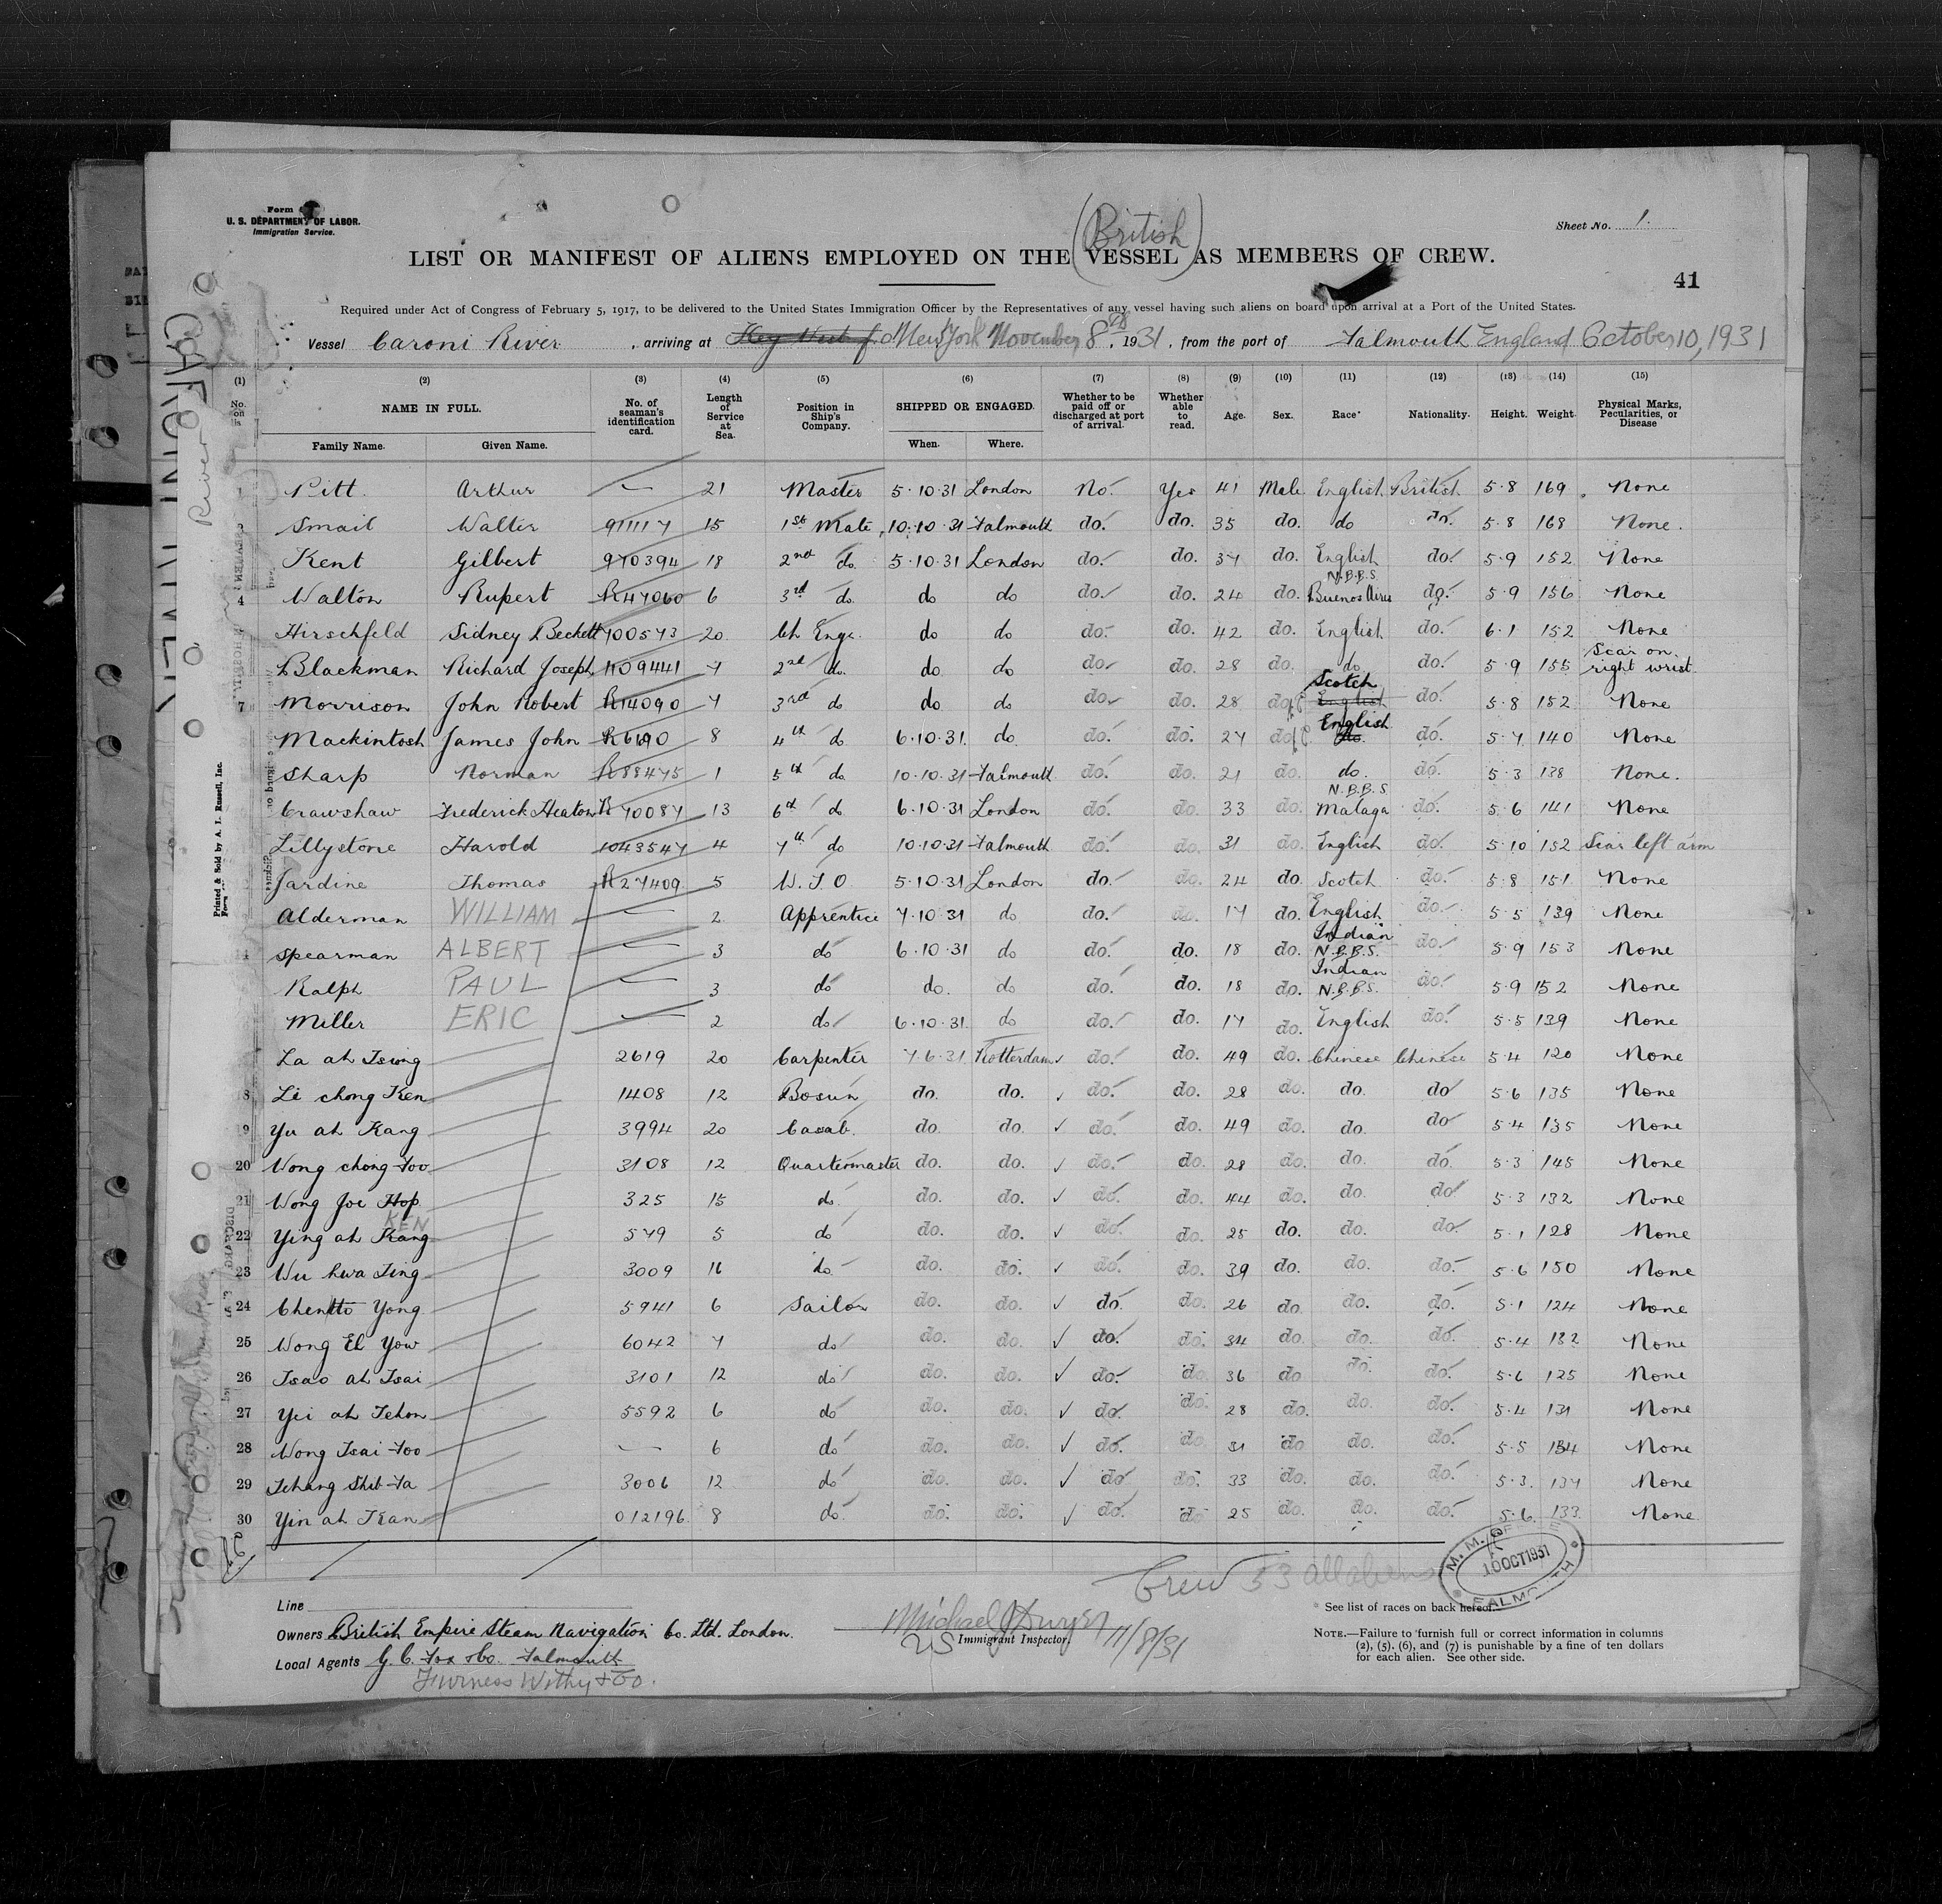 Form
U. S. DEPARTMENT OF LABOR.
Immigration Service.
Sheet No. 1.
(British)
LIST OR MANIFEST OF ALIENS EMPLOYED ON THE VESSEL AS MEMBERS OF CREW.
41
Required under Act of Congress of February 5, 1917, to be delivered to the United States Immigration Officer by the Representatives of any vessel having such aliens on board upon arrival at a Port of the United States.
Vessel Caroni River, arriving at New York November 8th, 1931, from the port of Falmouth England October 10, 1931
(1) (2) (3) (4) (5) (6) (7) (8) (9) (10) (11) (12) (13) (14) (15)
No. on NAME IN FULL. Family Name. Given Name. No. of seaman's identification card. Length of Service at Sea. Position in Ship's Company. SHIPPED OR ENGAGED. When. Where. Whether to be paid off or discharged at port of arrival. Whether able to read. Age. Sex. Race* Nationality. Height. Weight. Physical Marks, Pecularities, or Disease
Pitt Arthur — 21 Master 5.10.31 London No. Yes 41 Male English British 5.8 169 None
Smail Walter 911117 15 1st Mate 10.10.31 Falmouth do. do. 35 do. do do. 5.8 168 None.
Kent Gilbert 970394 18 2nd do. 5.10.31 London do. do. 37 do. English do. 5.9 152 None
4 Walton Rupert R47060 6 3rd do. do do do. do. 24 do. N.B.B.S. Buenos Aires do. 5.9 156 None
Hirschfeld Sidney Beckett 700573 20 Ch Engr. do do do. do. 42 do. English do. 6.1 152 None
Blackman Richard Joseph 1109441 7 2nd do. do do do. do. 28 do. do do. 5.9 155 Scar on right wrist
7 Morrison John Robert R14090 7 3rd do do do do. do. 28 do Scotch English do. 5.8 152 None
Mackintosh James John 8 4th do 6.10.31. do. do. do. 27 do English do. do. 5.7 140 None
Sharp Norman R88475 1 5th do 10.10.31 Falmouth do. do. 21 do. do. do. 5.3 138 None.
Crawshaw Frederick Heaton R70087 13 6th do 6.10.31 London do. do. 33 do. N.B.B.S. Malaga do. 5.6 141 None
Lillystone Harold 1043547 4 7th do 10.10.31 Falmouth do. do. 31 do. English do. 5.10 152 Scar left arm
Jardine Thomas R27409 5 W.T.O 5.10.31 London do. do. 24 do. Scotch do. 5.8 151 None
Alderman WILLIAM — 2 Apprentice 7.10.31 do do. do. 17 do. English do. 5.5 139 None
14 Spearman ALBERT — 3 do 6.10.31 do do. do. 18 do. Indian N.B.B.S. do. 5.9 153 None
Ralph PAUL — 3 do do. do do. do. 18 do. Indian N.B.B.S. do. 5.9 152 None
Miller ERIC — 2 do 6.10.31. do do. do. 17 do. English do. 5.5 139 None
La ah Tsong 2619 20 Carpenter 7.6.31 Rotterdam ✓ do. do. 49 do. Chinese Chinese 5.4 120 None
18 Li chong Ken 1408 12 Bosun do. do. ✓ do. do. 28 do. do. do 5.6 135 None
19 Yu ah Kang 3994 20 Casab. do. do. ✓ do. do. 49 do. do. do 5.4 135 None
20 Wong chong Foo 3108 12 Quartermaster do. do. ✓ do. do. 28 do. do. do. 5.3 145 None
21 Wong Joe Hop 325 15 do. do. do. ✓ do. do. 44 do. do. do 5.3 132 None
22 Ying ah Kang KEN 579 5 do do. do. ✓ do. do. 25 do. do. do. 5.1 128 None
23 Wu hwa Ting 3009 16 do. do. do. ✓ do. do. 39 do. do. do. 5.6 150 None
24 Yong 5941 6 Sailor do. do. ✓ do. do. 26 do. do. do. 5.1 124 None
25 Wong El Yow 6042 7 do do. do. ✓ do. do. 34 do. do. do. 5.4 132 None
26 Tsao ah Tsai 3101 12 do do. do. ✓ do. do. 36 do do. do. 5.6 125 None
27 Yei ah Tehon 5592 6 do do. do. ✓ do. do. 28 do. do. do. 5.4 131 None
28 Wong Tsai Foo — 6 do do. do. ✓ do. do 31 do do. do. 5.5 134 None
29 Tchang Shib Fa 3006 12 do do. do. ✓ do do. 33 do. do. do. 5.3. 137 None
30 Yin ah Kan 012196 8 do. do. do. ✓ do. do 25 do. do. do. 5.6. 133. None
Crew 53 all aliens
M.M. OFFICE
10 OCT 1931
FALMOUTH
Line
* See list of races on back hereof.
Owners British Empire Steam Navigation Co. Ltd. London.
Michael J Dwyer 11/8/31
US Immigrant Inspector.
NOTE.—Failure to furnish full or correct information in columns (2), (5), (6), and (7) is punishable by a fine of ten dollars for each alien. See other side.
Local Agents G. C. Fox & Co. Falmouth
Furness Withy & Co.
CARONI RIVER
River
Printed & Sold by A. I. Russell, Inc.